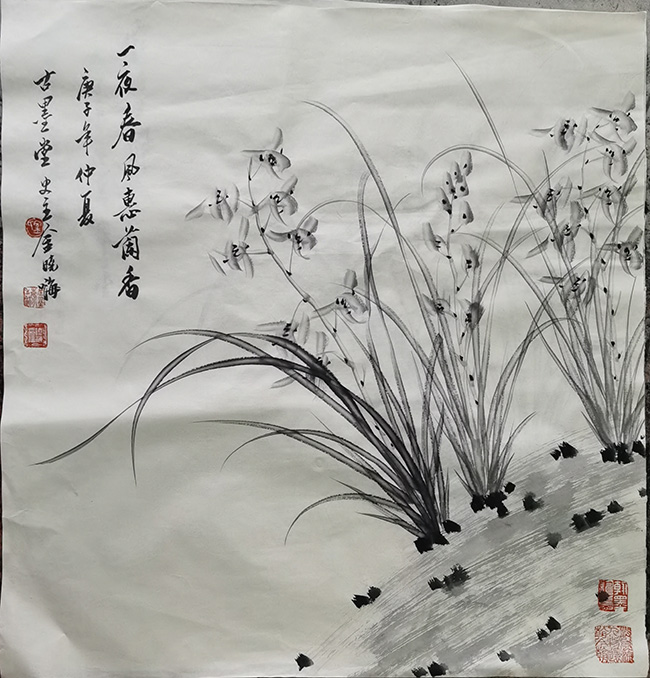 一夜春风惠蘭香
庚子年仲夏
古墨堂史立金晓梅